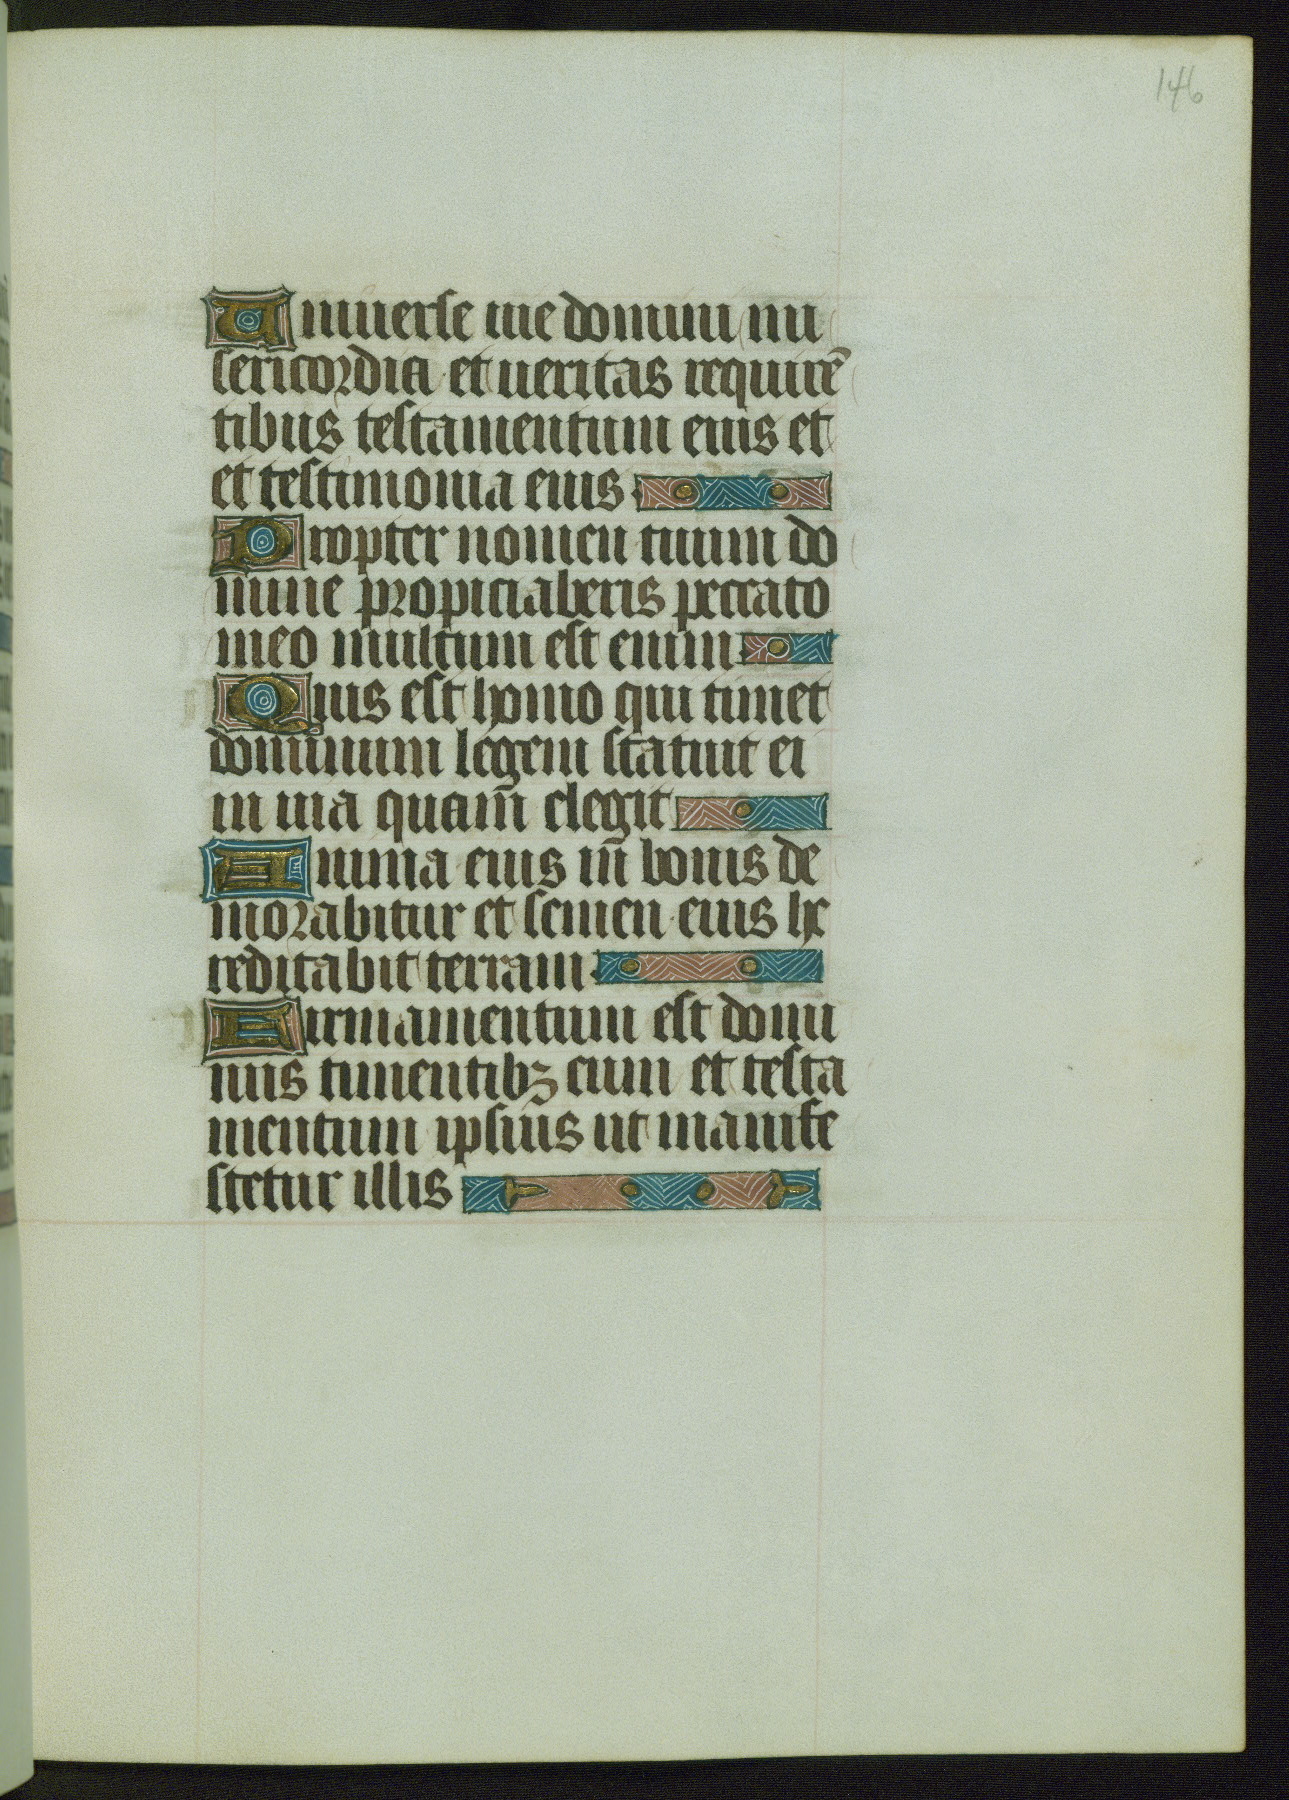 146
Uniuerse uie domini mi
sericordia et ueritas requirē
tibus testamentum eius et
et testimonia eius
Propter nomen tuum do
mine propiciaberis peccato
meo multum est enim
Quis est homo qui timet
dominum legem statuit ei
in uia quam̄ elegit
Anima eius in̄ bonis de
morabitur et semen eius he
reditabit terram
Firmamentum est domi
nus timentibꝫ eum et testa
mentum ipsius ut manife
stetur illis